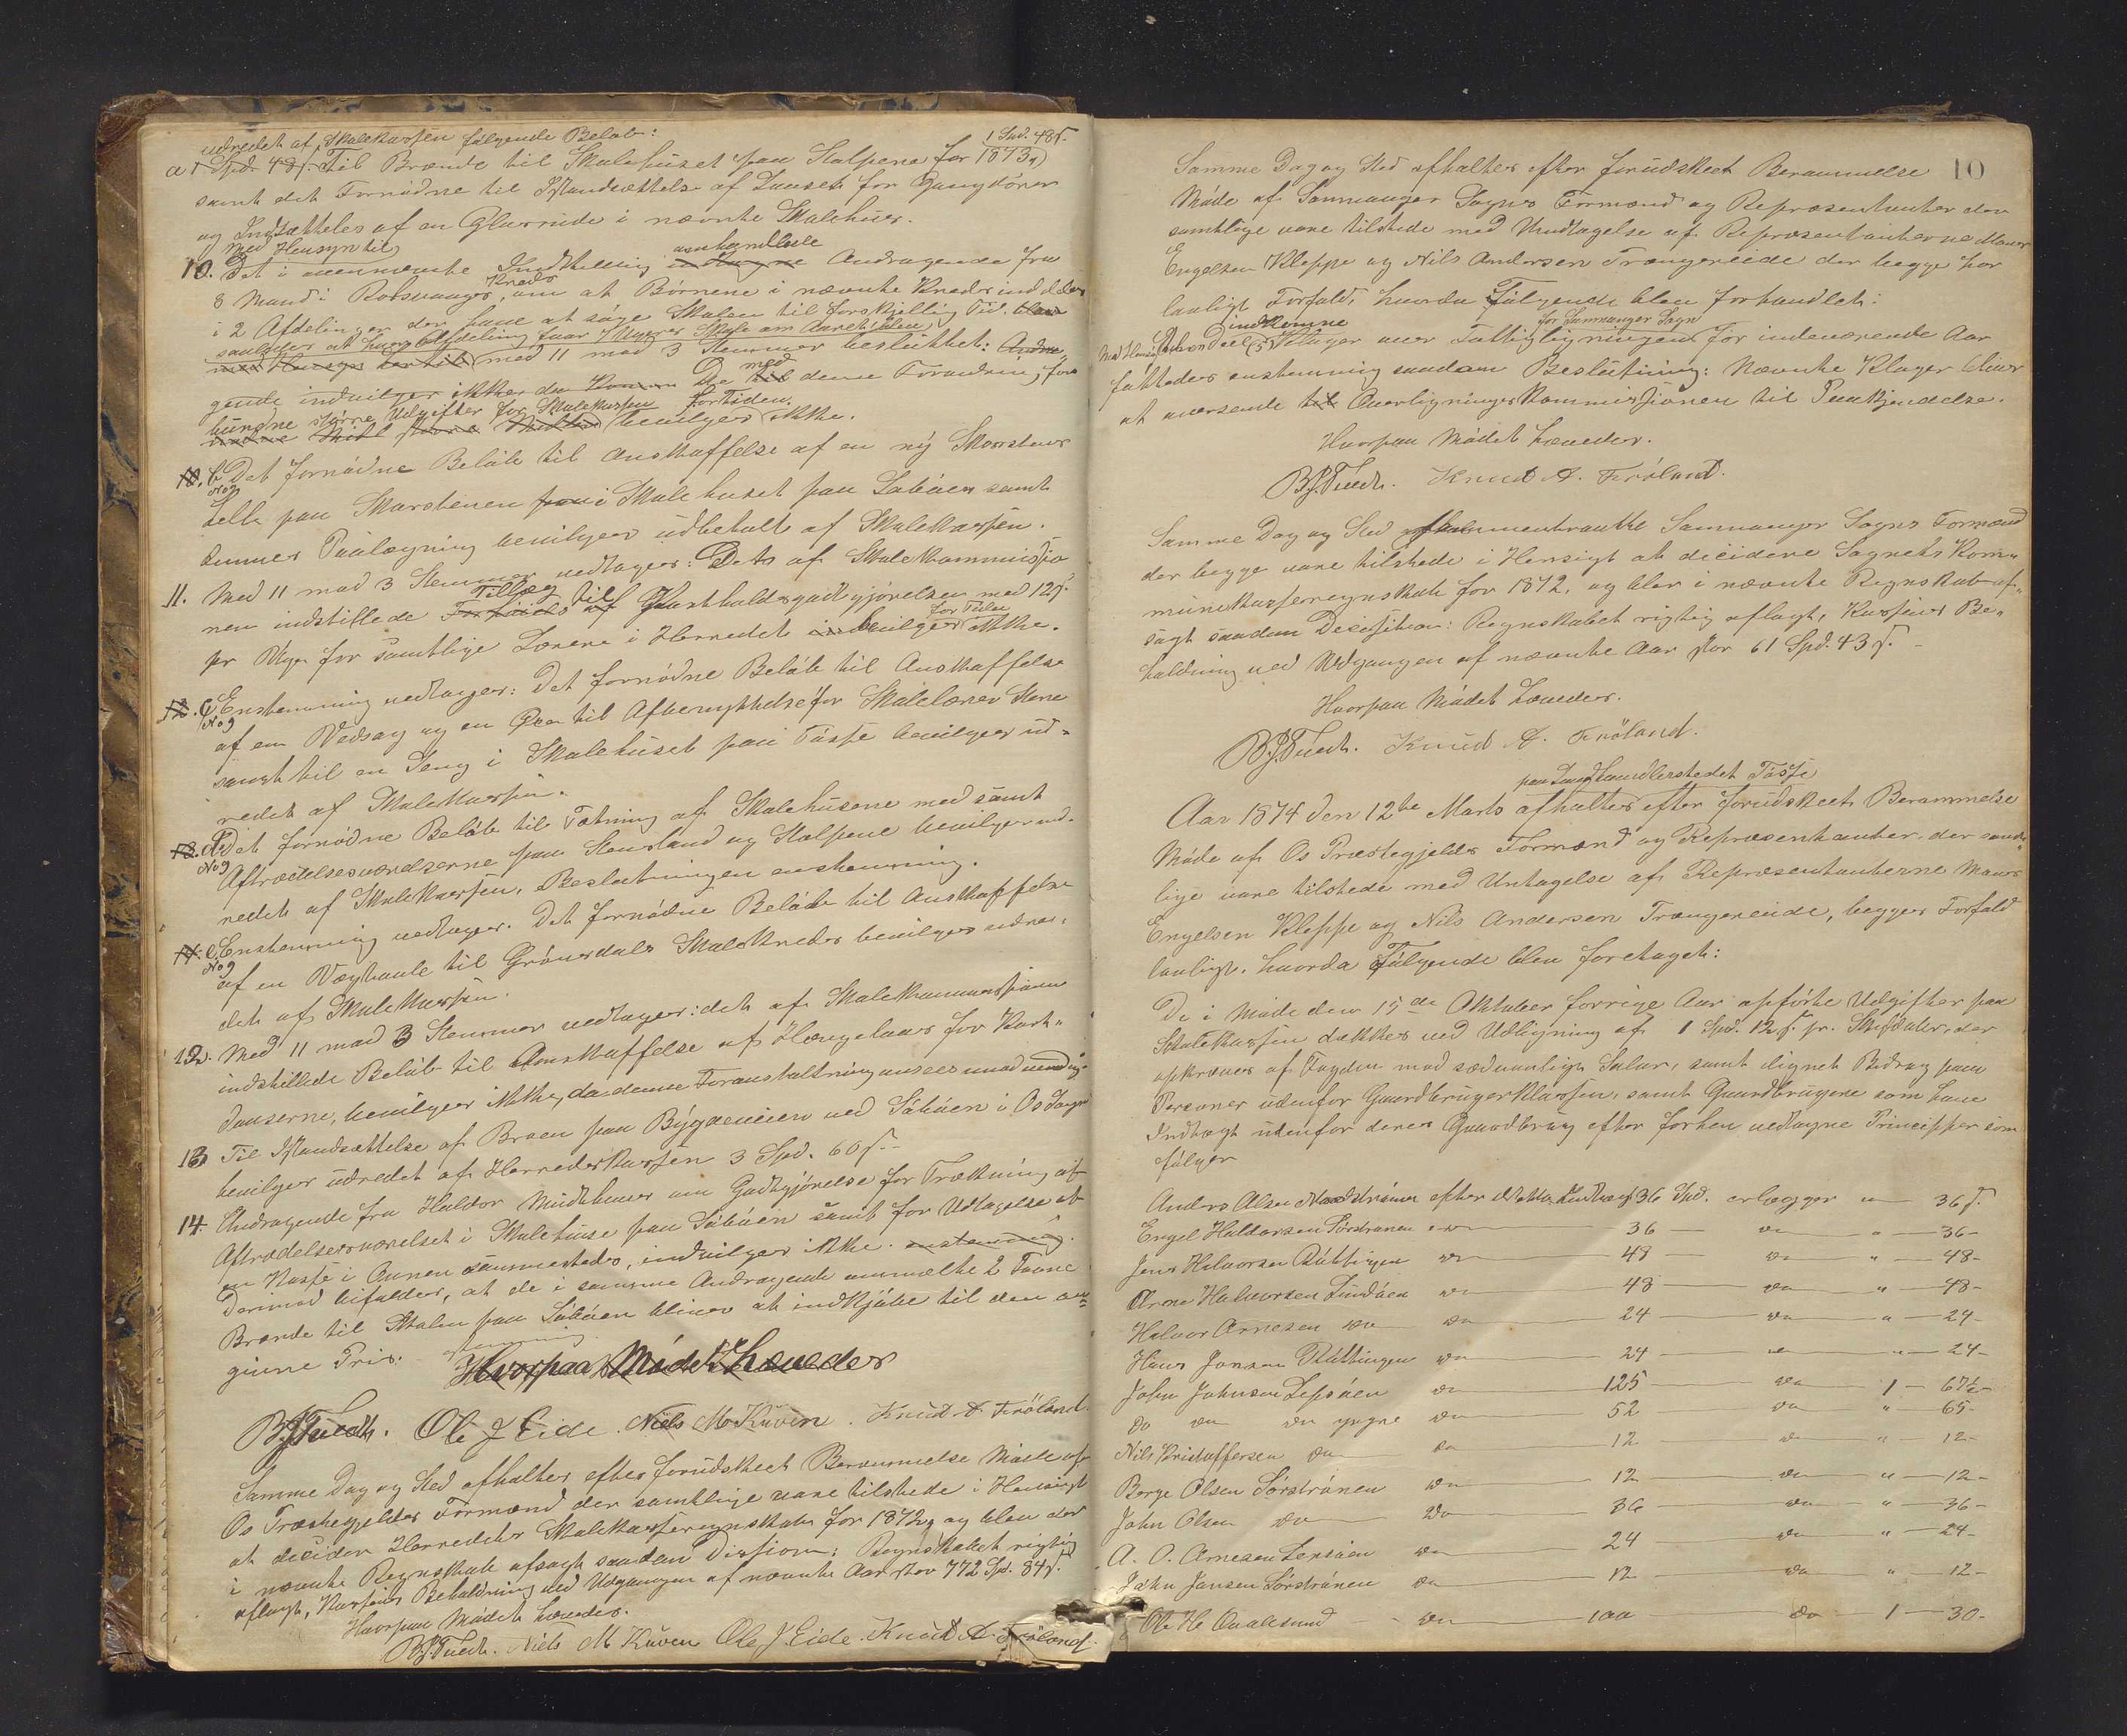 udredet af Skolekassen følgende Beløb:
a 1 Spd. 48 s. Til Brænde til Skolehuset paa Halpene for 1873, 1 Spd. 48 s.
samt det Fornødne til Istandsættelse af Laaset for Gangdøren
og Indsættelse af en Glasrude i nævnte Skolehus.
Med Hensyn til
10. Det i ovennævnte Indstilling omhandlede Andragende fra
8 Mand i Rotsvaags Kreds, om at Børnene i nævnte Kreds inddeles
i 2 Afdelinger der have at søge Skolen til forskjellig Tid,
saaledes at hver Afdeling faar 7 Uger Skole om Aaret blev
med Hensyn hertil med 11 mod 3 Stemmer besluttet: Andra-
gende indvilges ikke da De med denne Forandring for-
bundne større Udgifter for Skolekassen fortiden
bevilges ikke.
10. b Det fornødne Beløb til Anskaffelse af en ny Skorstens
No 9
helle paa Skorstenen i Skolehuset paa Søbøen samt
dennes Paalægning bevilges udbetalt af Skolekassen.
11. Med 11 mod 3 Stemmer vedtages: Det af Skolekommissio
nen indstillede Tillæg til Kostholdsgodtgjørelsen med 12 s.
pr Uge for samtlige Lærere i Herredet bevilges for Tiden ikke.
12. c Enstemmig vedtages: Det fornødne Beløb til Anskaffelse
No 9
af en Vedsag og en Øxe til Afbenyttelse for Skolelærer Hare
samt til en Seng i Skolehuset paa Tøsse bevilges ud-
redet af Skolekassen.
13. d Det fornødne Beløb til Tætning af Skolehusene med samt
No 9
Aftrædelsesværelserne paa Hauland og Halpene bevilges ud-
redet af Skolekassen. Beslutningen enstemmig.
14. e Enstemmig vedtages. Det fornødne Beløb til Anskaffelse
No 9
af en Vægtavle til Grønsdals Skolekreds bevilges udre-
det af Skolekassen.
12. Med 11 mod 3 Stemmer vedtages: det af Skolekommissionen
indstillede Beløb til Anskaffelse af Hængelaas for Kart-
daaserne, bevilges ikke, da denne Foranstaltning ansees unødvendig.
13. Til Istandsættelse af Broen paa Bygdeveien ved Søbøen i Os Sogn
bevilges udredet af Herredskassen 3 Spd. 60 s.
14. Andragende fra Haldor Midthuus om Godtgjørelse for Trækning af
Aftrædelsesværelset i Skolehuse paa Søbøen samt for Udtagelse af
en Kasse i Ovnen sammesteds, indvilges ikke. enstemmig.
Derimod bifaldes, at de i samme Andragende ommeldte 2 Favne
Brænde til Skolen paa Søbøen bliver at indkjøbe til den op-
givne Pris.
Hvorpaa Mødet hævedes
B. Tuedt. Ole J Eide. Niels M Kuven. Knud A. Frøland.
Samme Dag og Sted afholdtes efter forudskeet Berammelse Møde af
Os Præstegjelds Formænd der samtlige vare tilstede i Hensigt
at decidere Herredets Skolekasseregnskab for 1872, og blev der
i nævnte Regnskab afsagt saadan Desision: Regnskabet rigtig
aflagt, Kassens Beholdning ved Udgangen af nævnte Aar stor 772 Spd. 84 s.
Hvorpaa Mødet hævedes.
B. Tuedt. Niels M Kuven Ole J Eide. Knud A. Frøland.
10
Samme Dag og Sted afholdtes efter forudskeet Berammelse
Møde af Samnanger Sogns Formænd og Repræsentanter der
samtlige vare tilstede med Undtagelse af Repræsentanterne Mons
Engelsen Kleppe og Nils Andersen Trængereide der begge har
lovligt Forfald, hvorda Følgende blev forhandlet:
Med Hensyn til en Deel indkomne (5) Klager over Fattigligningen for Samnanger Sogn for indeværende Aar
fattedes enstemmig saadan Beslutning: Nævnte Klager bliver
at oversende Overligningskommissionen til Paakjendelse.
Hvorpaa Mødet hævedes.
B. Tuedt. Knud A. Frøland.
Samme Dag og Sted sammentraadte Samnanger Sogns Formænd
der begge vare tilstede i Hensigt at decidere Sognets Kom-
munekasseregnskab for 1872, og blev i nævnte Regnskab af-
sagt saadan Decision: Regnskabet rigtig aflagt, Kassens Be-
holdning ved Udgangen af nævnte Aar stor 61 Spd. 43 s.
Hvorpaa Mødet hævedes.
B. Tuedt. Knud A. Frøland.
paa Landhandlerstedet Tøsse
Aar 1874 den 12te Marts afholdtes efter forudskeet Berammelse
Møde af Os Præstegjelds Formænd og Repræsentanter, der samt-
lige vare tilstede med Untagelse af Repræsentanterne Mons
Engelsen Kleppe og Nils Andersen Trængereide, begges Forfald
lovligt. hvorda Følgende blev foretaget:
De i Møde den 15de Oktober forrige Aar opførte Udgifter paa
Skolekassen dækkes ved Udligning af 1 Spd. 12 s. pr. Skylddaler, der
opkræves af Fogden mod sædvanligt Salær, samt lignet Bidrag paa
Personer udenfor Gaardbrugerklassen, samt Gaardbrugere som have
Indtægt udenfor deres Gaardbrug efter forhen vedtagne Principper som
følger
Anders Olsen Nordstrønen efter antatte Indtægt 36 Spd. erlægger " — 36 s.
Engel Haldorsen Sørstrønen do — 36 — do " — 36 -
Jens Halvorsen Røttingen do — 48 — do " — 48 -
Arne Halvorsen Lindøen do — 48 — do " — 48 -
Halvor Arnesen do do — 24 — do " — 24 -
Hans Jonsen Røttingen do — 24 — do " — 24 -
John Johnsen Lepsøen do — 125 — do 1 — 67½ -
Do do do yngre do — 52 — do " — 65 -
Nils Kristoffersen do do — 12 — do " — 12 -
Børge Olsen Sørstrønen do — 12 — do " — 12 -
John Olsen do do — 36 — do " — 36 -
A. O. Arnesen Lepsøen do — 24 — do " — 24 -
John Jansen Sørstrønen do — 12 — do " — 12 -
Ole H. Qvalesund do — 100 — do 1 — 30 -